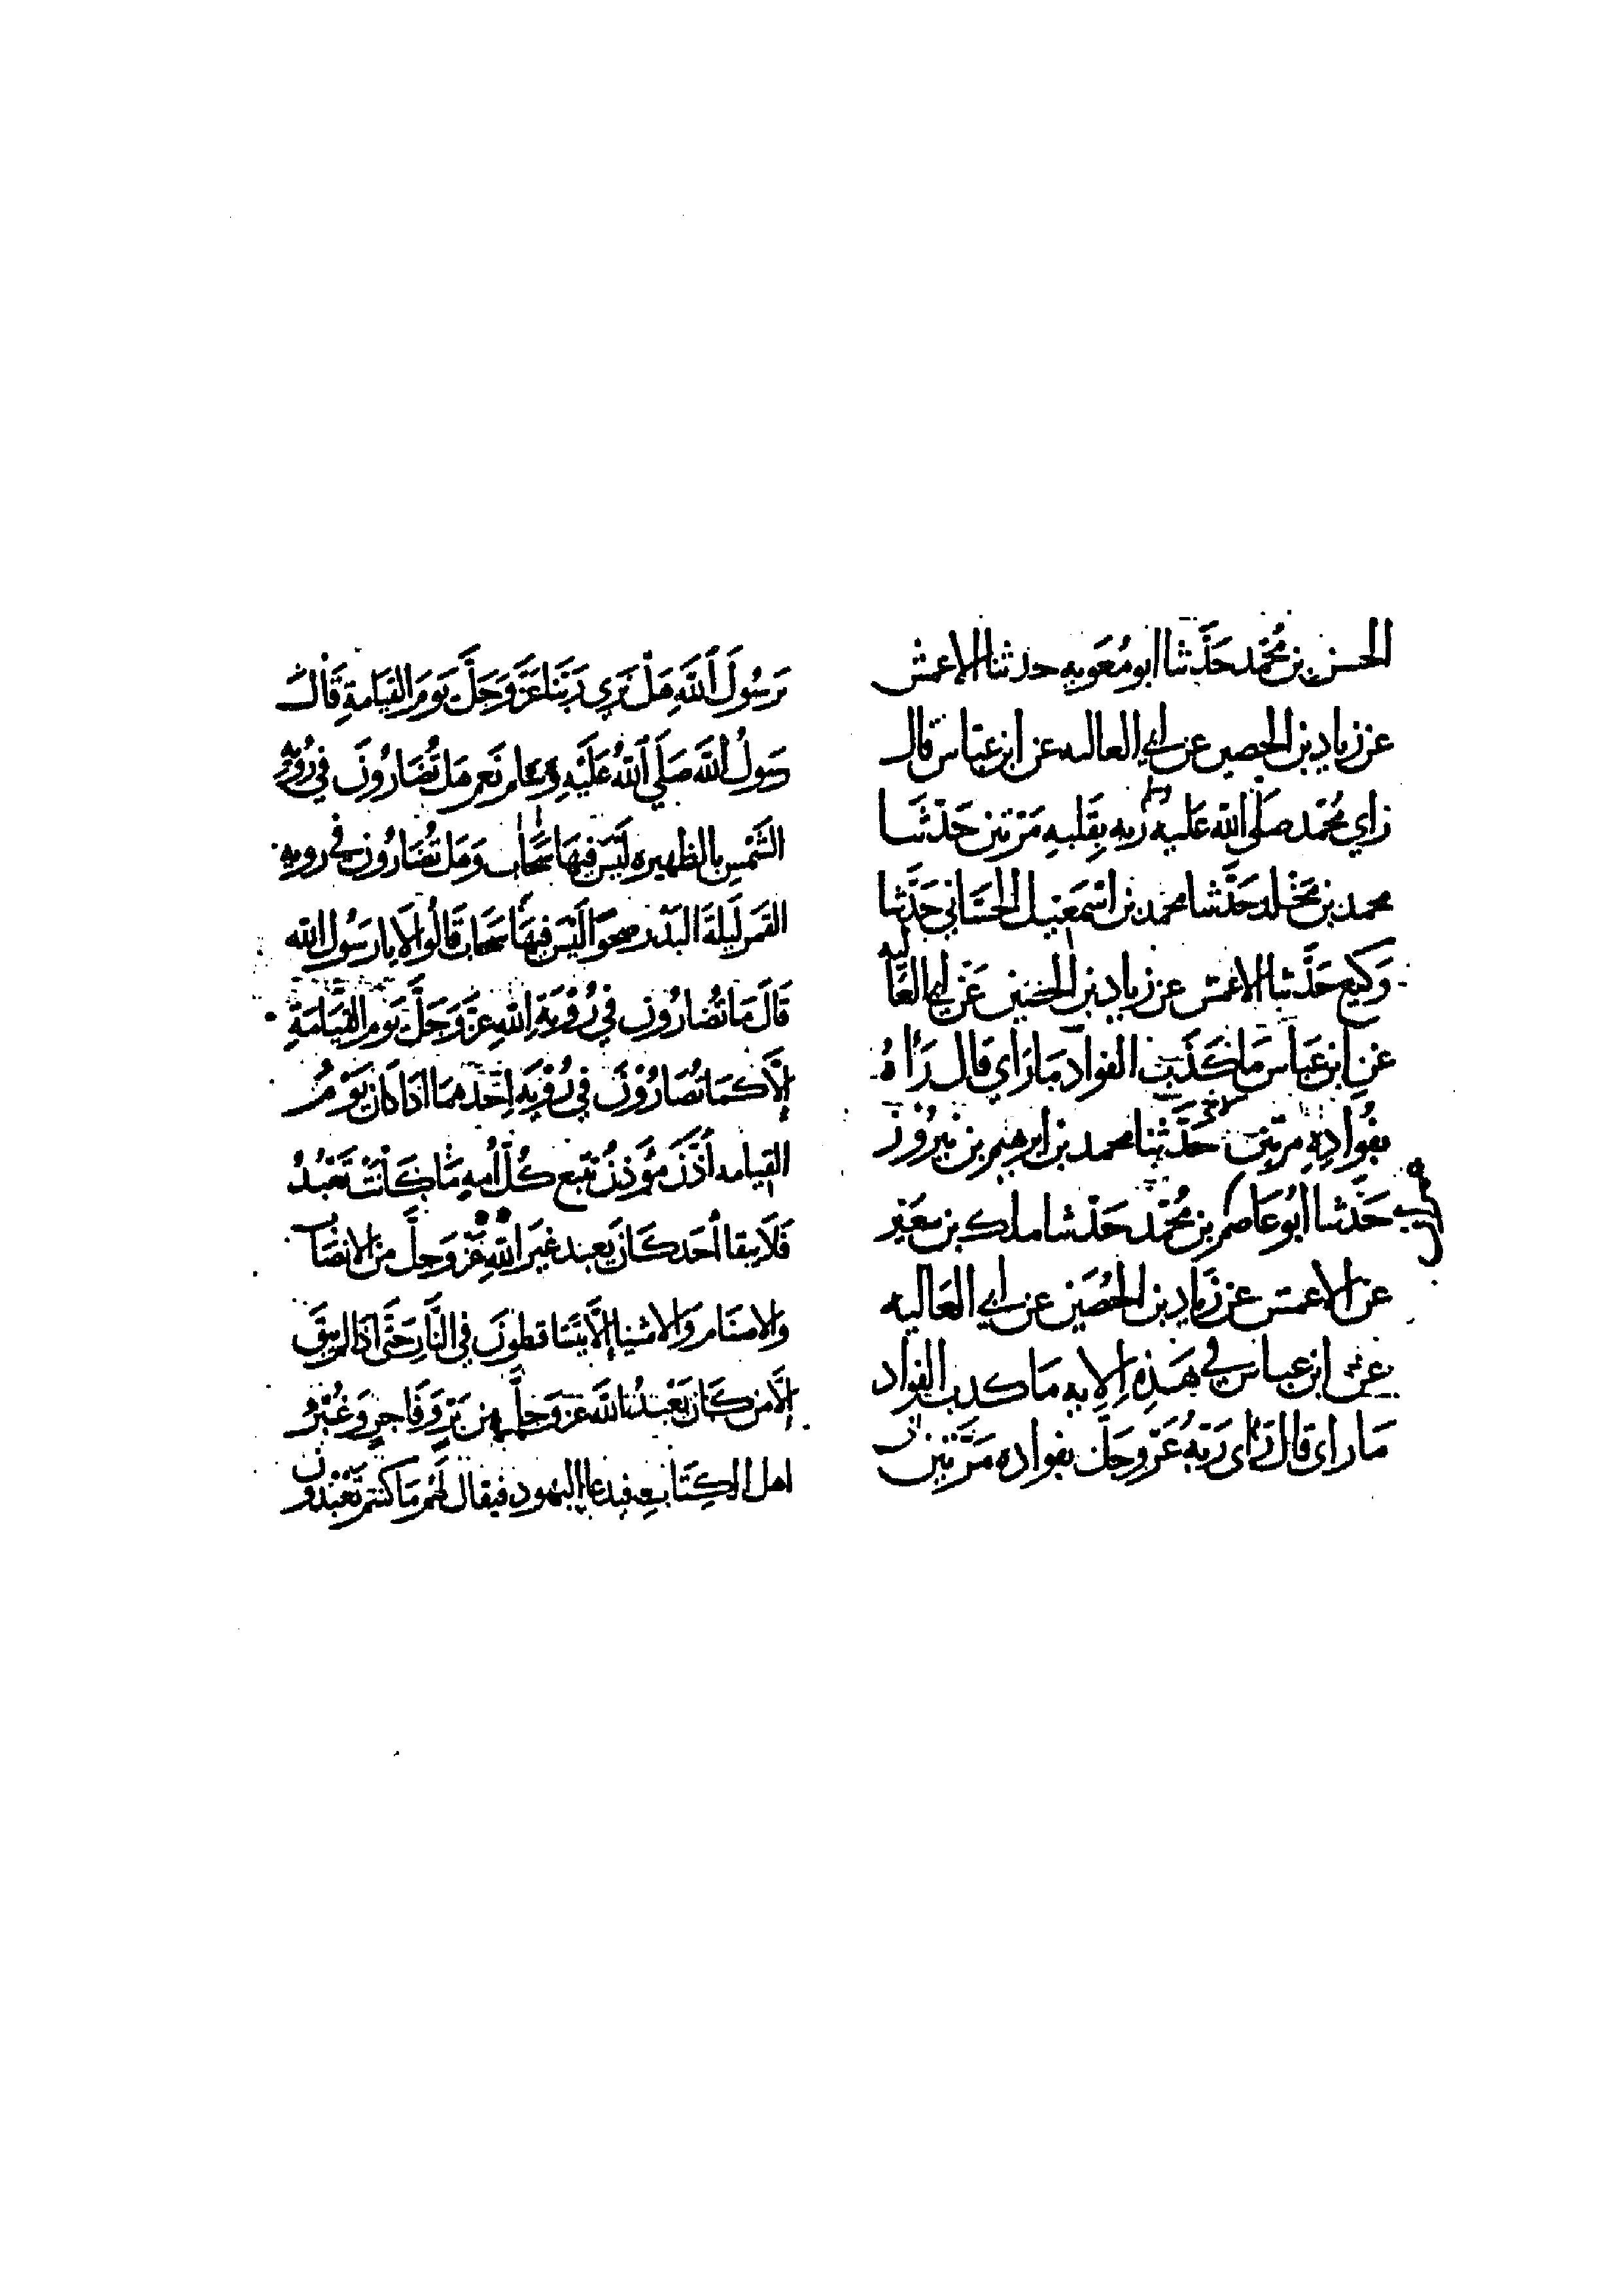 الحسن بن مُحَمَّد حَدَّثنا ابو مُعَوِيه حدثنا الاعمش
عن زياد بن الحصين عن ابي العاليه عن ابن عبّاس قال
رَاي مُحَمّد صَلي الله عَليه وسلم ربه بِقَلبهِ مَرّتين حَدّثنا
محمد بن مَخلد حَدَّثنا محمد بن اسْمَعيل الحَسّاني حَدَّثنا
وَكيع حَدَّثنا الاعمش عن زياد بن الحُصين عَن ابي العَاليه
عَن ابن عبّاس مَا كَذَبَ الفواد مَا رَاي قَال رَاهُ
بفُوادِهِ مرتين حَدَّثنا محمد بن ابرهيم بن نَيرُوز
حَدَّثنا ابُو عَاصم بن مُحَمّد حَدّثنا ملك بن سعَير
عن الاعمش عن زَياد بن الحُصَين عن ابي العَاليه
عن ابن عباس في هَذِهِ الايه مَا كدب الفواد
مَا راى قال رَاى رَبّهُ عَزّ وجَلّ بفواده مَرّتَين
يَرسُولَ اللهِ هَلْ نَرَي رَبَّنَا عَزَّ وَجَلَّ يَومَ القيَامةِ قَالَ
رَسَولُ اللهِ صَلَّي اللهُ عَلَيْهِ وسلم نَعم هَل تُضَارُونَ في رُويةِ
الشَّمْسِ بالظهيره لَيسَ فيهَا سَحَاب وَهَل تُضَارُونَ في رويه
القَمر لَيلةَ البَدر صحوًا لَيْسَ فيهَا سَحاب قَالُوا لَا يا رَسُول الله
قَالَ مَا تُضارُون في رُؤيَةِ اللهِ عَزَّ وَجَلَّ يَوم القيَامَةِ
إلَّا كَمَا تُضَارُوْنَ في رُؤيَةِ اِحَدهمَا اذَا كَان يَوْمُ
القيامه أذَّنَ مُؤَذِنٌ تتبع كُلّ أمهٍ مَا كَانَتْ تَعْبُدُ
فَلَا يبقا أحَد كَانَ يعبد غيَر اللهِ عَزّ وَجلّ من الانصَاب
وَالاصنَام وَالاشيا إلَّا يتَسَاقطونَ في النَّارِ حَتَّى اذَا لم يبقَ
إلَّا من كَانَ يَعْبُدُ اللهَ عزّ وَجلَّ مِن بَرٍّ وَفَاجرٍ وَغُبّرُ
اهل الكِتَابِ فيدعا اليهود فيقال لَهُم مَا كنتم تَعْبُدُون